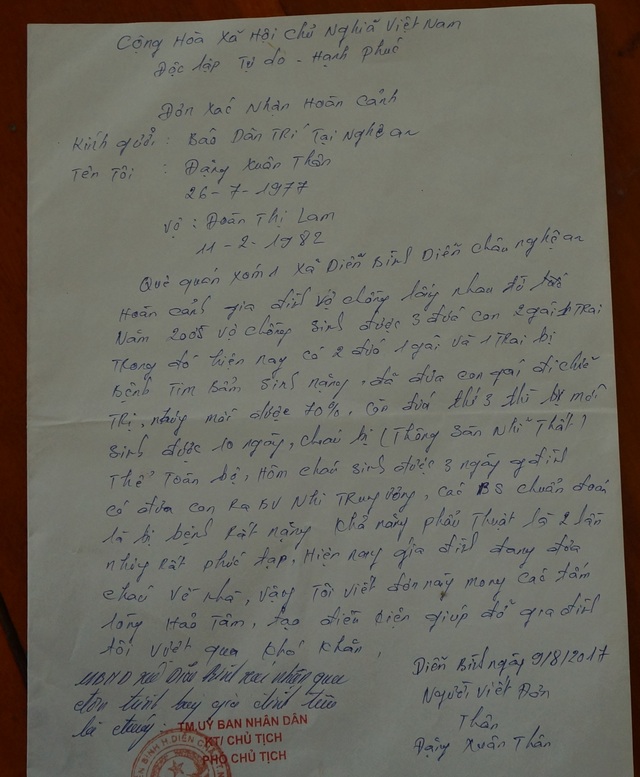 Cộng Hòa Xã Hội Chủ Nghĩa Việt Nam
Độc lập Tự do - Hạnh phúc
Đơn Xác Nhận Hoàn Cảnh
Kính gửi : Báo Dân Trí Tại Nghệ an
Tên Tôi : Đặng Xuân Thân
26 - 7 - 1977
Vợ : Đoàn Thị Lam
11 - 2 - 1982
Quê quán xóm 1 xã Diễn Bình Diễn Châu nghệ an
Hoàn cảnh gia đình Vợ chồng lấy nhau từ
Năm 2005 vợ chồng sinh được 3 đứa con 2 gái 1 Trai
Trong đó hiện nay có 2 đứa 1 gái và 1 Trai bị
bệnh Tim Bẩm Sinh nặng, đã đưa con gái đi chữa
Trị, nhưng mới được 70%, còn đứa thứ 3 thì mới
sinh được 10 ngày, cháu bị (Thông Sàn Nhĩ Thất)
Thể Toàn bộ, Hôm cháu sinh được 3 ngày gđình
có đưa con Ra BV Nhi Trung ương, các BS chuẩn đoán
là bị bệnh Rất nặng khả năng phẩu Thuật là 2 lần
nhưng Rất phức tạp. Hiện nay gia đình đang đưa
cháu về nhà, vậy Tôi viết đơn này mong các tấm
lòng Hảo Tâm, tạo điều kiện giúp đỡ gia đình
tôi vượt qua khó khăn,
UBND xã Diễn Bình xác nhận qua
đơn trình bày gia đình trên
là đúng.
Diễn Bình ngày 9/8/2017
Người viết Đơn
Thân
Đặng Xuân Thân
TM.UỶ BAN NHÂN DÂN
KT/ CHỦ TỊCH
PHÓ CHỦ TỊCH